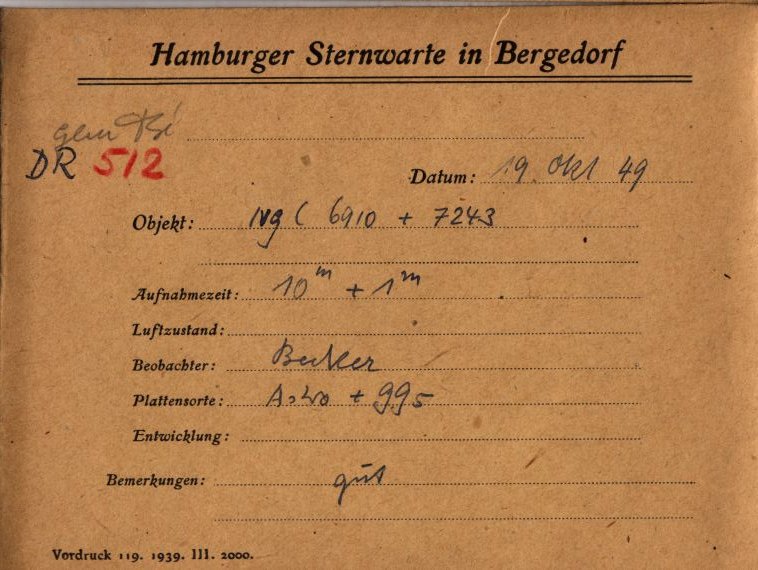 Hamburger Sternwarte in Bergedorf
DR 512
Datum: 19. Okt 49
Objekt: NgC 6910 + 7243
Aufnahmezeit: 10m + 1m
Luftzustand:
Beobachter: Becker
Plattensorte: Astro + 995
Entwicklung:
Bemerkungen: gut
Vordruck 119. 1939. III. 2000.